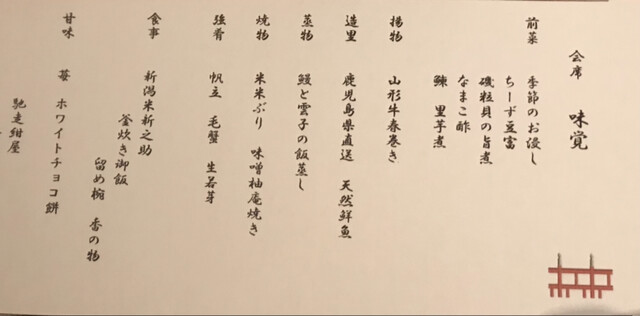 会席 味覚
前菜 季節のお浸し
ちーず豆富
磯粒貝の旨煮
なまこ酢
鰊 里芋煮
揚物 山形牛春巻き
造里 鹿児島県直送 天然鮮魚
蒸物 鰻と雲子の飯蒸し
焼物 米米ぶり 味噌柚庵焼き
強肴 帆立 毛蟹 生若芽
食事 新潟米新之助
釜炊き御飯
留め椀 香の物
甘味 苺 ホワイトチョコ餅
馳走紺屋